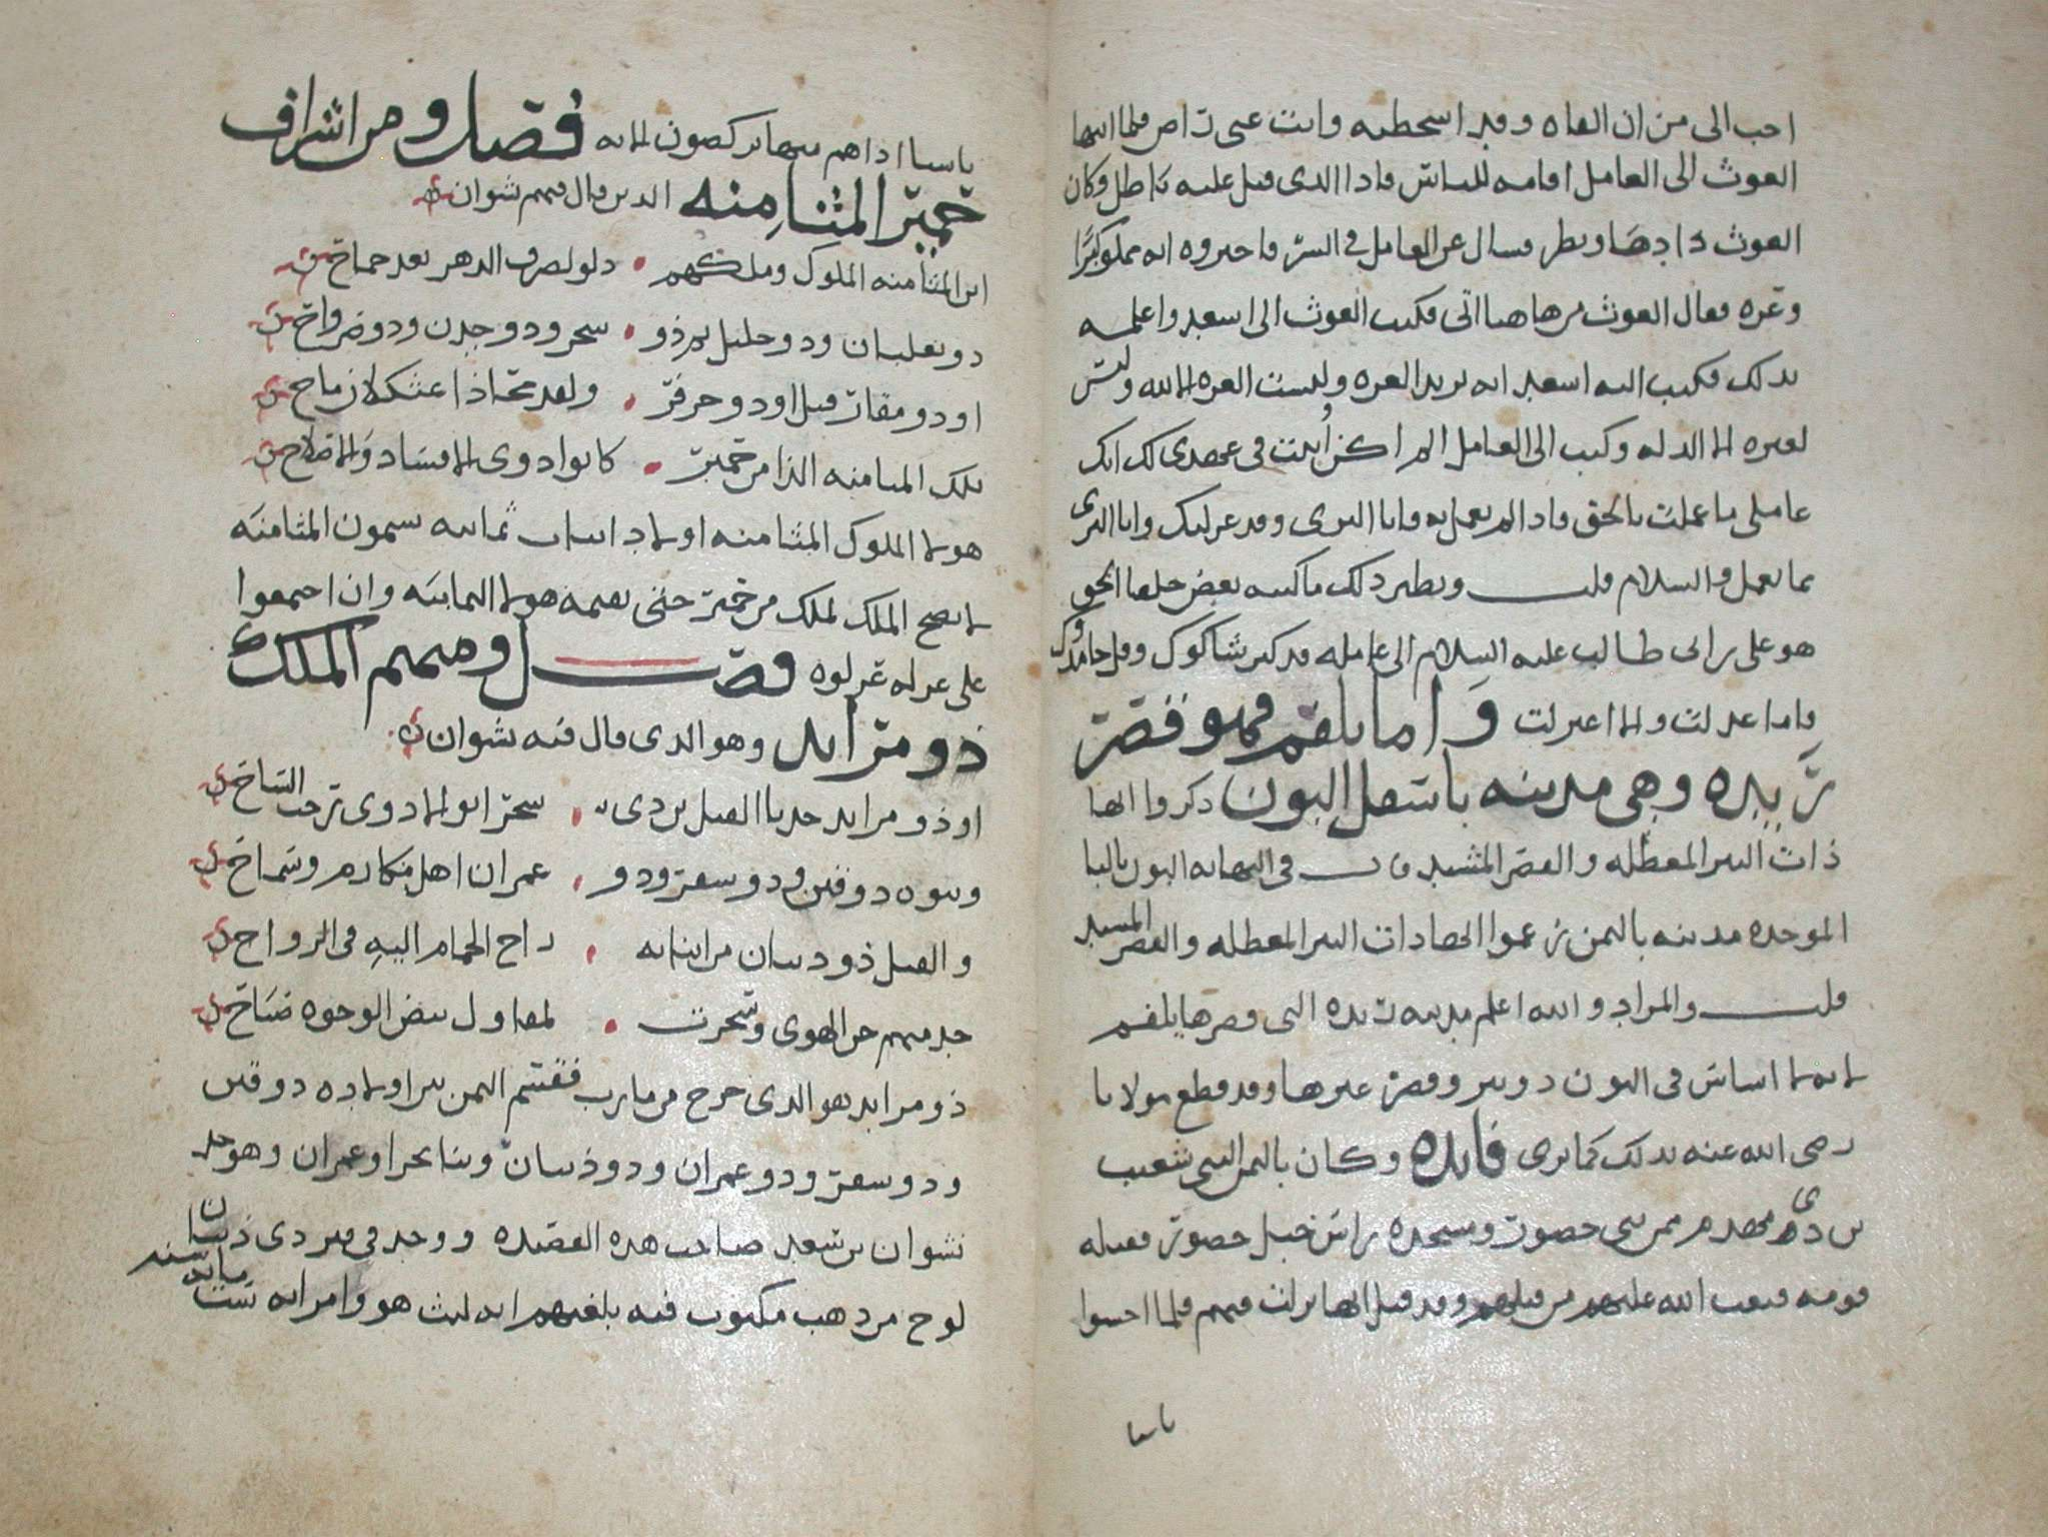 احب الى من ان القاه وقد اسخطته وانت عبى راض فلما انتها
الغوث الى العامل اقامه للناس فاذا الذى قيل عليه باطل وكان
الغوث ذا دها ونظر فسال عن العامل فى السر فاخبروه انه
وعره فقال الغوث من هاهنا اتى فكتب الغوث الى اسعد واعلمه
بذلك فكتب اليه اسعد انه يريد العزه وليست العزه الا لله وليس
لغيره الا الذله وكتب الى العامل الم اكن فى عهدى لك انك
عاملى ما عملت بالحق فاذا لم تعمل به فانا البرى وقد عزلتك وانا البرى
مما تعمل والسلام قلت ونظير ذلك ما كتبه بعض خلفا الحق
هو على بن ابى طالب عليه السلام الى عامله قد كثر شاكوك وقل حامدوك
فاما عدلت والا اعتزلت واما يلقم فهو فقصر
ريده وهى مدينه باسفل البون ذكروا انها
ذات البير المعطله والقصر المشيد قال فى النهايه البون بالبا
الموحده مدينه باليمن زعموا انها ذات البير المعطله والقصر المشيد
قلت والمراد والله اعلم مدينه ريده التى قصرها يلقم
لانه لا اساس فى البون دو بير وقصر غيرها وقد قطع مولانا
رضى الله عنه بذلك كما ترى فايده وكان باليمن النبى شعيب
بن ذى مهدم من بنى حضور ومسجده براس جبل حضور فقتله
قومه فبعث الله عليهم من قتلهم وقد قيل انها نزلت فيهم فلما احسوا
باسنا
باسنا اذا هم منها يركضون الايه فصل ومن اشراف
حمير المثامنه الذين قال فيهم نشوان
اين المثامنه الملوك وملكهم دلوا لصرف الدهر بعد جماح
ذو ثعلبان وذو خليل ثم ذو سحر وذو جدن وذو صرواح
او ذو مقار قبل او ذو حزفر ولقد محا ذا عثكلان ماح
تلك المثامنه الذرا من حمير كانوا ذوى الافساد والاصلاح
هولا الملوك المثامنه اولاد ابيات ثمانيه يسمون المثامنه
لا يصح الملك لملك من حمير حتى يقيمه هولا الثمانيه وان اجتمعوا
على عزله عزلوه فصل ومنهم الملك
ذو مراثد وهو الذى قال فيه نشوان
او ذو مراثد جدنا القيل بن ذى سحر ابو الاذوى رحب الساح
وبنوه ذو قين وذو سعر وذو عمران اهل مكارم وسماح
والقيل ذو ذبيان من ابنايه راح الحمام اليه فى الرواح
جد منهم حن الهوى وتحرت لمقاول بيض الوجوه صباح
ذو مراثد هو الذى خرج من مارب فقسم اليمن بين اولاده ذو قين
وذو سعر وذو عمران وذو ذبيان وبنا بحرا وعمران وهو جد
نشوان بن سعيد صاحب هذه القصيده ووجد فى قبر ذى ذبيان
لوح من ذهب مكتوب فيه بلغتهم انه لبث هو وامراته ست مايه سنه